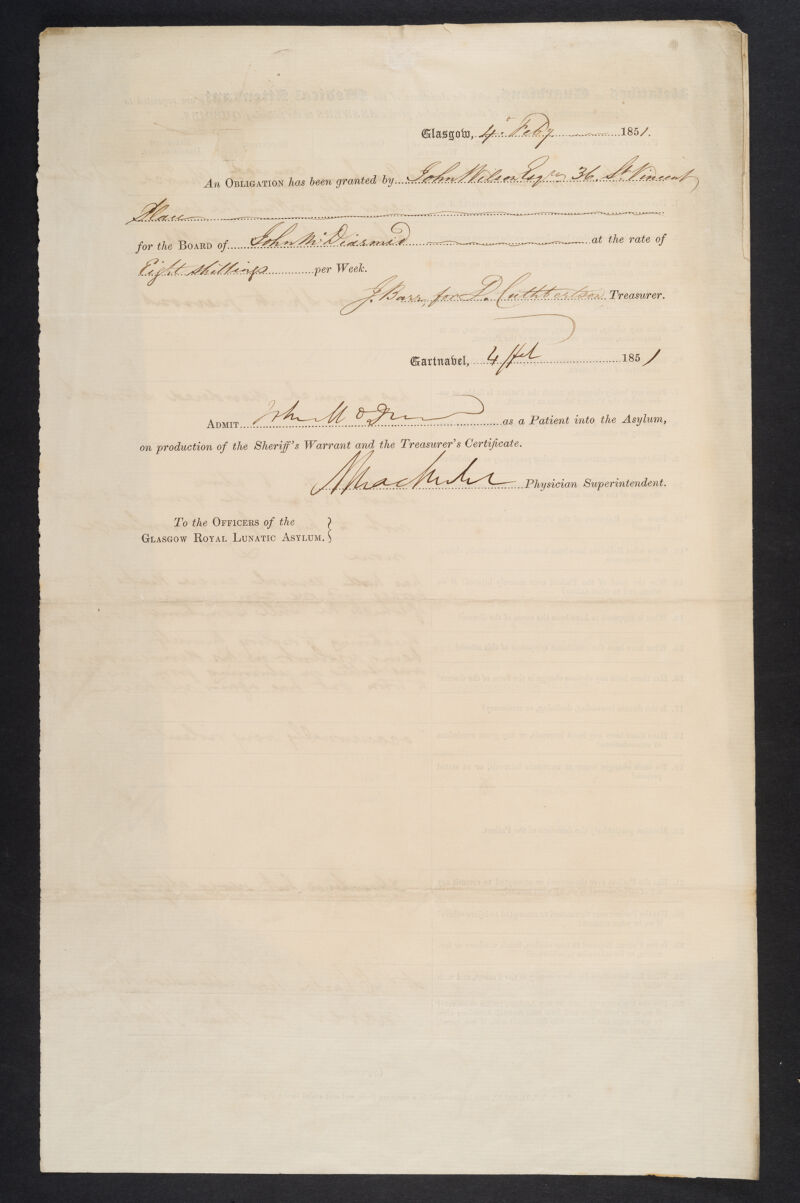 Glasgow, 4 Feby 1851.
An Obligation has been granted by John Wilson Esqr 36 St Vincent
Place
for the Board of John McDiarmid at the rate of
Eight shillings per Week.
J. Barr for D. Cuthbertson Treasurer.
Gartnavel, 4 Feb 1851
Admit John McD as a Patient into the Asylum,
on production of the Sheriff's Warrant and the Treasurer's Certificate.
Physician Superintendent.
To the Officers of the
Glasgow Royal Lunatic Asylum.